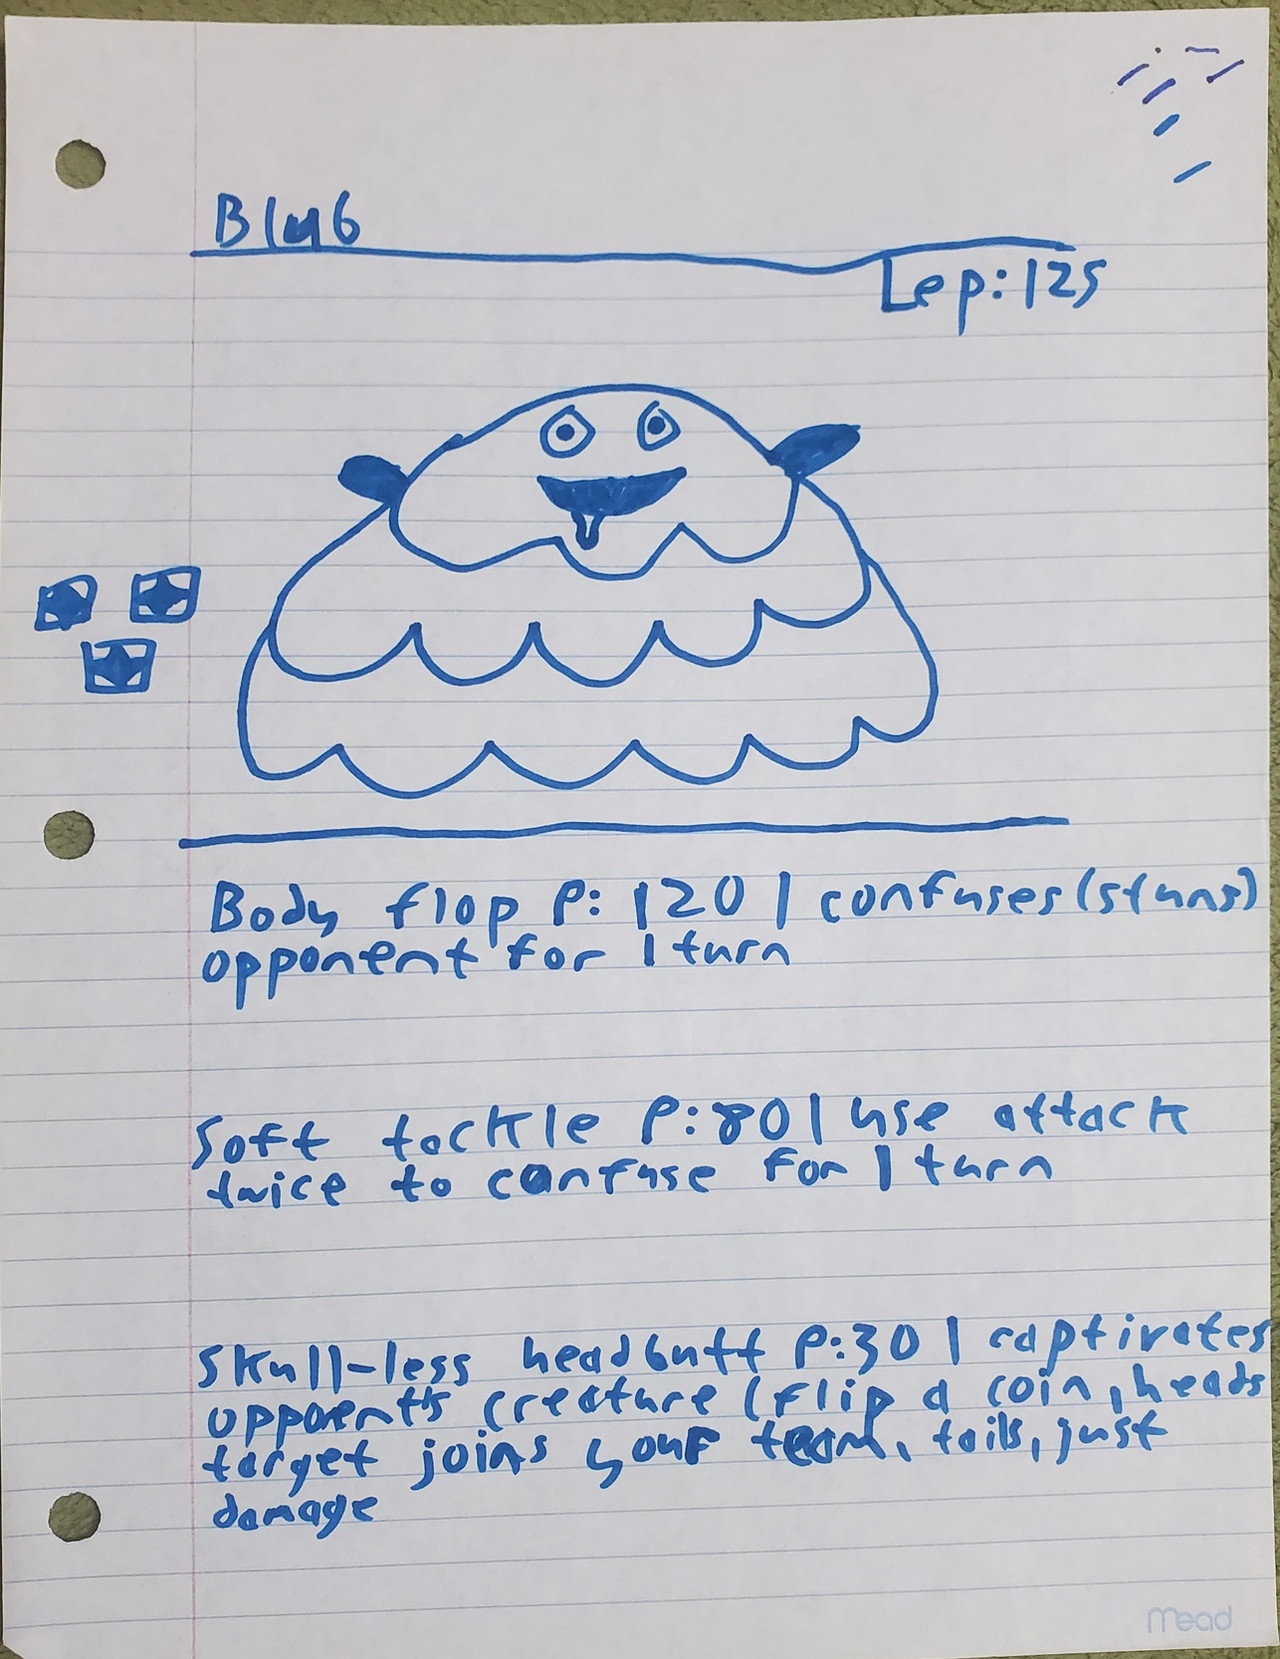 Blub
Lep: 125
Body flop P: 120 | confuses (stuns)
opponent for 1 turn
Soft tackle P: 80 | use attack
twice to confuse for 1 turn
Skull-less headbutt P: 30 | captivates
opponent's creature (flip a coin, heads
target joins your team, tails, just
damage
Mead